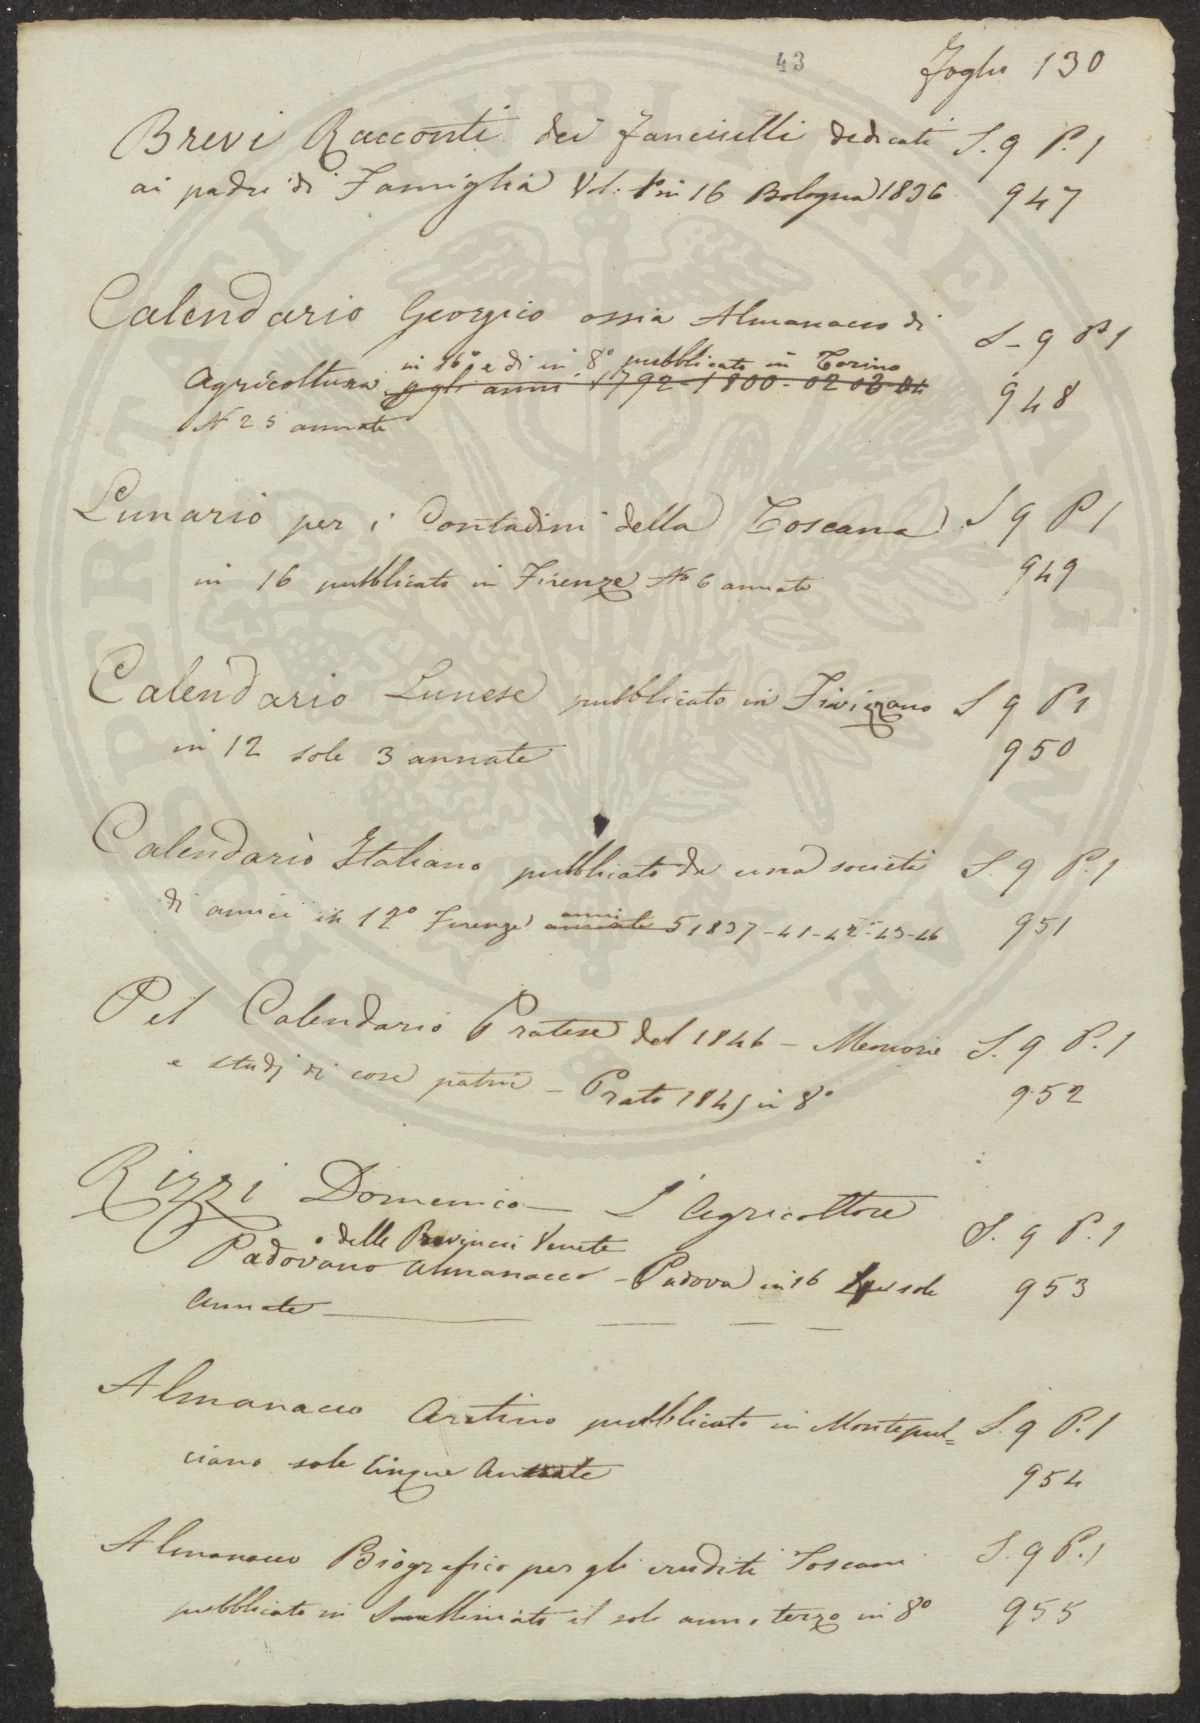 43
Foglio 130
Brevi Racconti dei Fanciulli dedicati S. 9 P. 1
ai padri di Famiglia Vol: 1 in 16 Bologna 1836 947
Calendario Georgico ossia Almanacco di S - 9 P 1
in 16° e di in 8° pubblicato in Torino
Agricoltura p gli anni 1792-1800-02 03 04 948
N 25 annate
Lunario per i Contadini della Toscana S 9 P 1
in 16 pubblicato in Firenze No 6 annate 949
Calendario Lunese pubblicato in Fivizzano S 9 P 1
in 12 sole 3 annate 950
Calendario Italiano pubblicato da una società S. 9 P. 1
anni
di amici in 12° Firenze annate 5 1837-41-42-43-46 951
Pel Calendario Pratese del 1846 - Memorie S. 9 P. 1
e studj di cose patrie - Prato 1845 in 8° 952
Rizzi Domenico - L'Agricoltore S. 9 P. 1
o delle Provincie Venete
Padovano Almanacco - Padova in 16 sole 953
Annate
Almanacco Aretino pubblicato in Montepul= S. 9 P. 1
ciano sole cinque Annate 954
Almanacco Biografico per gli eruditi Toscani S. 9 P. 1
pubblicato in il solo anno terzo in 8° 955